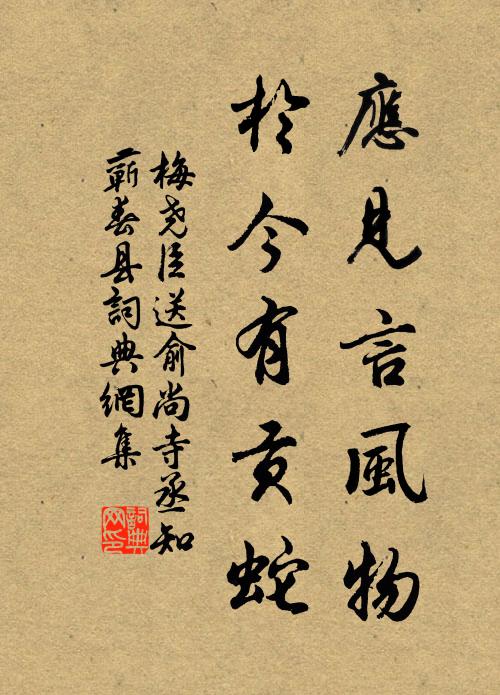 應見言風物
於今有貢蛇
梅尧臣送俞尚寺丞知
蕲春县詞典網集
詞典
网印